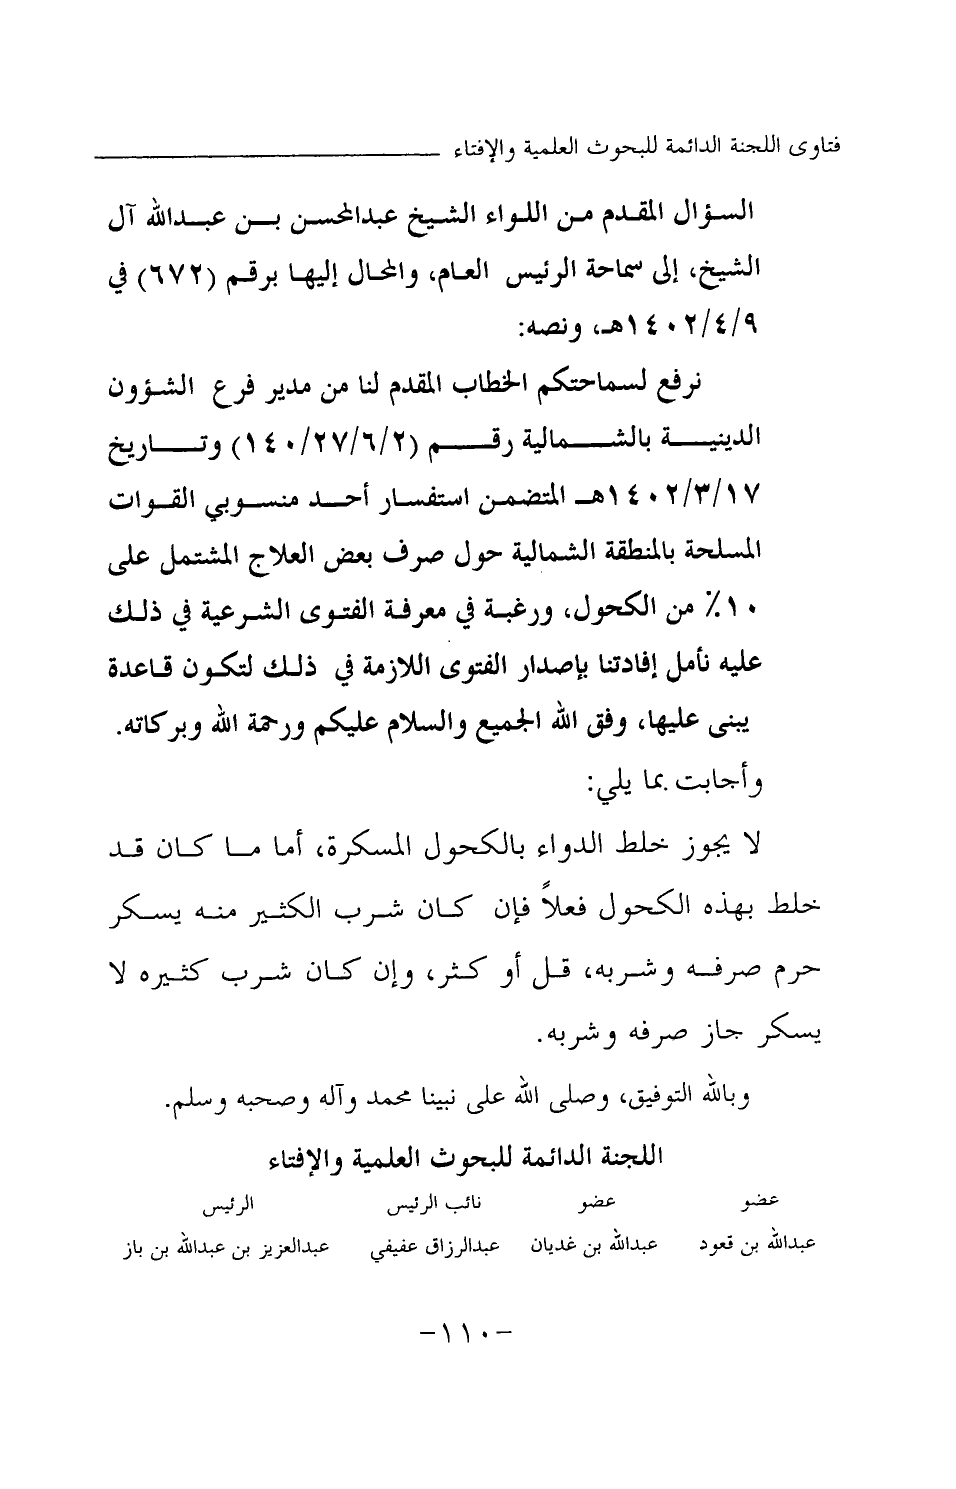 فتاوى اللجنة الدائمة للبحوث العلمية والإفتاء
السؤال المقدم من اللواء الشيخ عبدالمحسن بن عبدالله آل
الشيخ، إلى سماحة الرئيس العام، والمحال إليها برقم (٦٧٢) في
١٤٠٢/٤/٩هـ، ونصه:
نرفع لسماحتكم الخطاب المقدم لنا من مدير فرع الشؤون
الدينية بالشمالية رقم (١٤٠/٢٧/٦/٢) وتاريخ
١٤٠٢/٣/١٧هـ المتضمن استفسار أحد منسوبي القوات
المسلحة بالمنطقة الشمالية حول صرف بعض العلاج المشتمل على
١٠٪ من الكحول، ورغبة في معرفة الفتوى الشرعية في ذلك
عليه نأمل إفادتنا بإصدار الفتوى اللازمة في ذلك لتكون قاعدة
يبنى عليها، وفق الله الجميع والسلام عليكم ورحمة الله وبركاته.
وأجابت بما يلي:
لا يجوز خلط الدواء بالكحول المسكرة، أما ما كان قد
خلط بهذه الكحول فعلاً فإن كان شرب الكثير منه يسكر
حرم صرفه وشربه، قل أو كثر، وإن كان شرب كثيره لا
يسكر جاز صرفه وشربه.
وبالله التوفيق، وصلى الله على نبينا محمد وآله وصحبه وسلم.
اللجنة الدائمة للبحوث العلمية والإفتاء
عضو عضو نائب الرئيس الرئيس
عبدالله بن قعود عبدالله بن غديان عبدالرزاق عفيفي عبدالعزيز بن عبدالله بن باز
-١١٠-